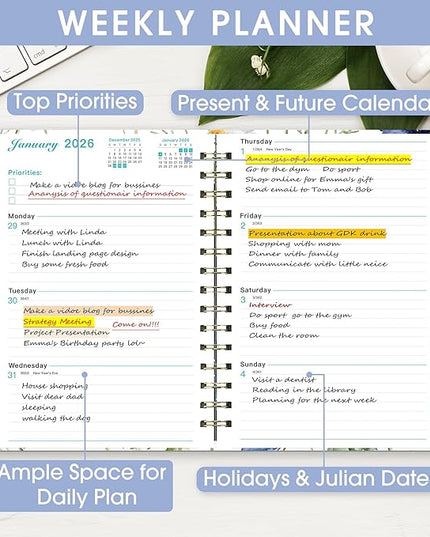 WEEKLY PLANNER
Top Priorities
Present & Future Calenda
January 2026
December 2025
January 2026
Priorities:
Make a vidoe blog for bussines
Ananysis of questionair information
Monday
29 363/2
Meeting with Linda
Lunch with Linda
Finish landing page design
Buy some fresh food
Tuesday
30 364/1
Make a vidoe blog for bussines
Strategy Meeting
Come on!!!!
Project Presentation
Emma's Birthday party lol~
Wednesday
31 365/0 New Year's Eve
House shopping
Visit dear dad
sleeping
walking the dog
Thursday
1 1/364 New Year's Day
Ananysis of questionair information
Go to the gym Do sport
Shop online for Emma's gift
Send email to Tom and Bob
Friday
2 2/363
Presentation about GDK drink
Shopping with mom
Dinner with family
Communicate with little neice
Saturday
3 3/362
Interview
Do sport go to the gym
Buy food
Clean the room
Sunday
4 4/361
Visit a dentist
Reading in the library
Planning for the next week
Ample Space for
Daily Plan
Holidays & Julian Date